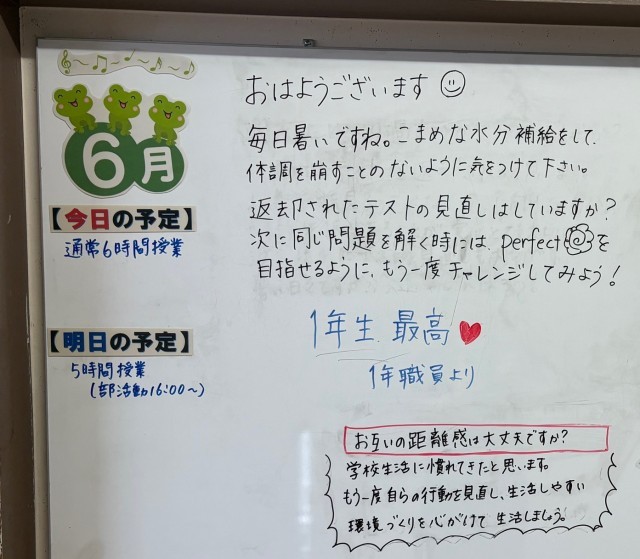 6月
【今日の予定】
通常6時間授業
【明日の予定】
5時間授業
(部活動16:00~)
おはようございます
毎日暑いですね。こまめな水分補給をして、
体調を崩すことのないように気をつけて下さい。
返却されたテストの見直しはしていますか?
次に同じ問題を解く時には、perfectを
目指せるように、もう一度チャレンジしてみよう!
1年生 最高
1年職員より
お互いの距離感は大丈夫ですか?
学校生活に慣れてきたと思います。
もう一度自らの行動を見直し、生活しやすい
環境づくりを心がけて生活しましょう。